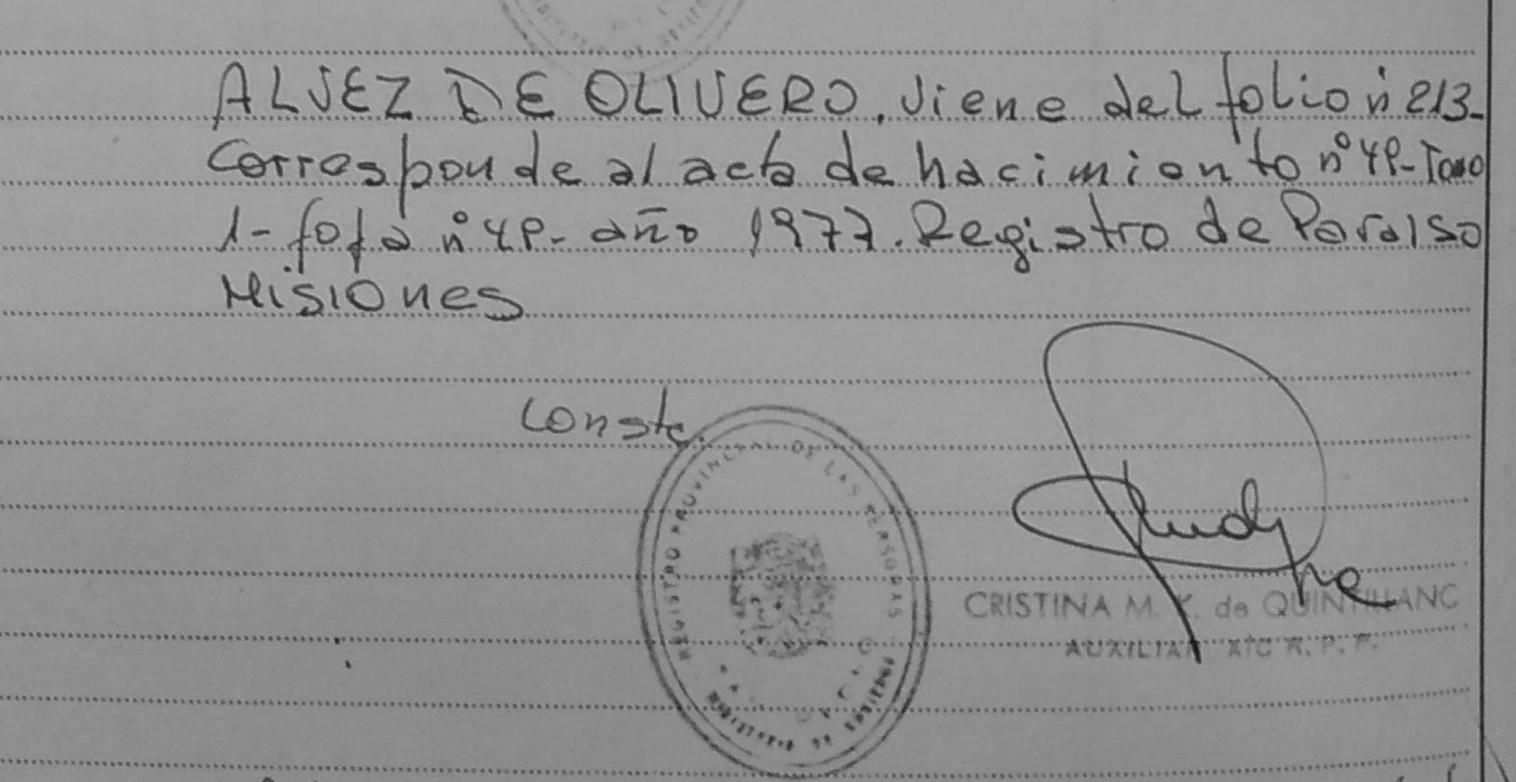 ALVEZ DE OLIVERO, viene del folio nº 213-
Corresponde al acta de nacimiento nº 49-Tomo
1- foja nº 49- año 1977. Registro de Paraiso
Misiones
Conste.
REGISTRO PROVINCIAL DE LAS PERSONAS
MINISTERIO DE GOBIERNO
CRISTINA M. K. de QUINTILIANO
AUXILIAR A/C R. P. P.